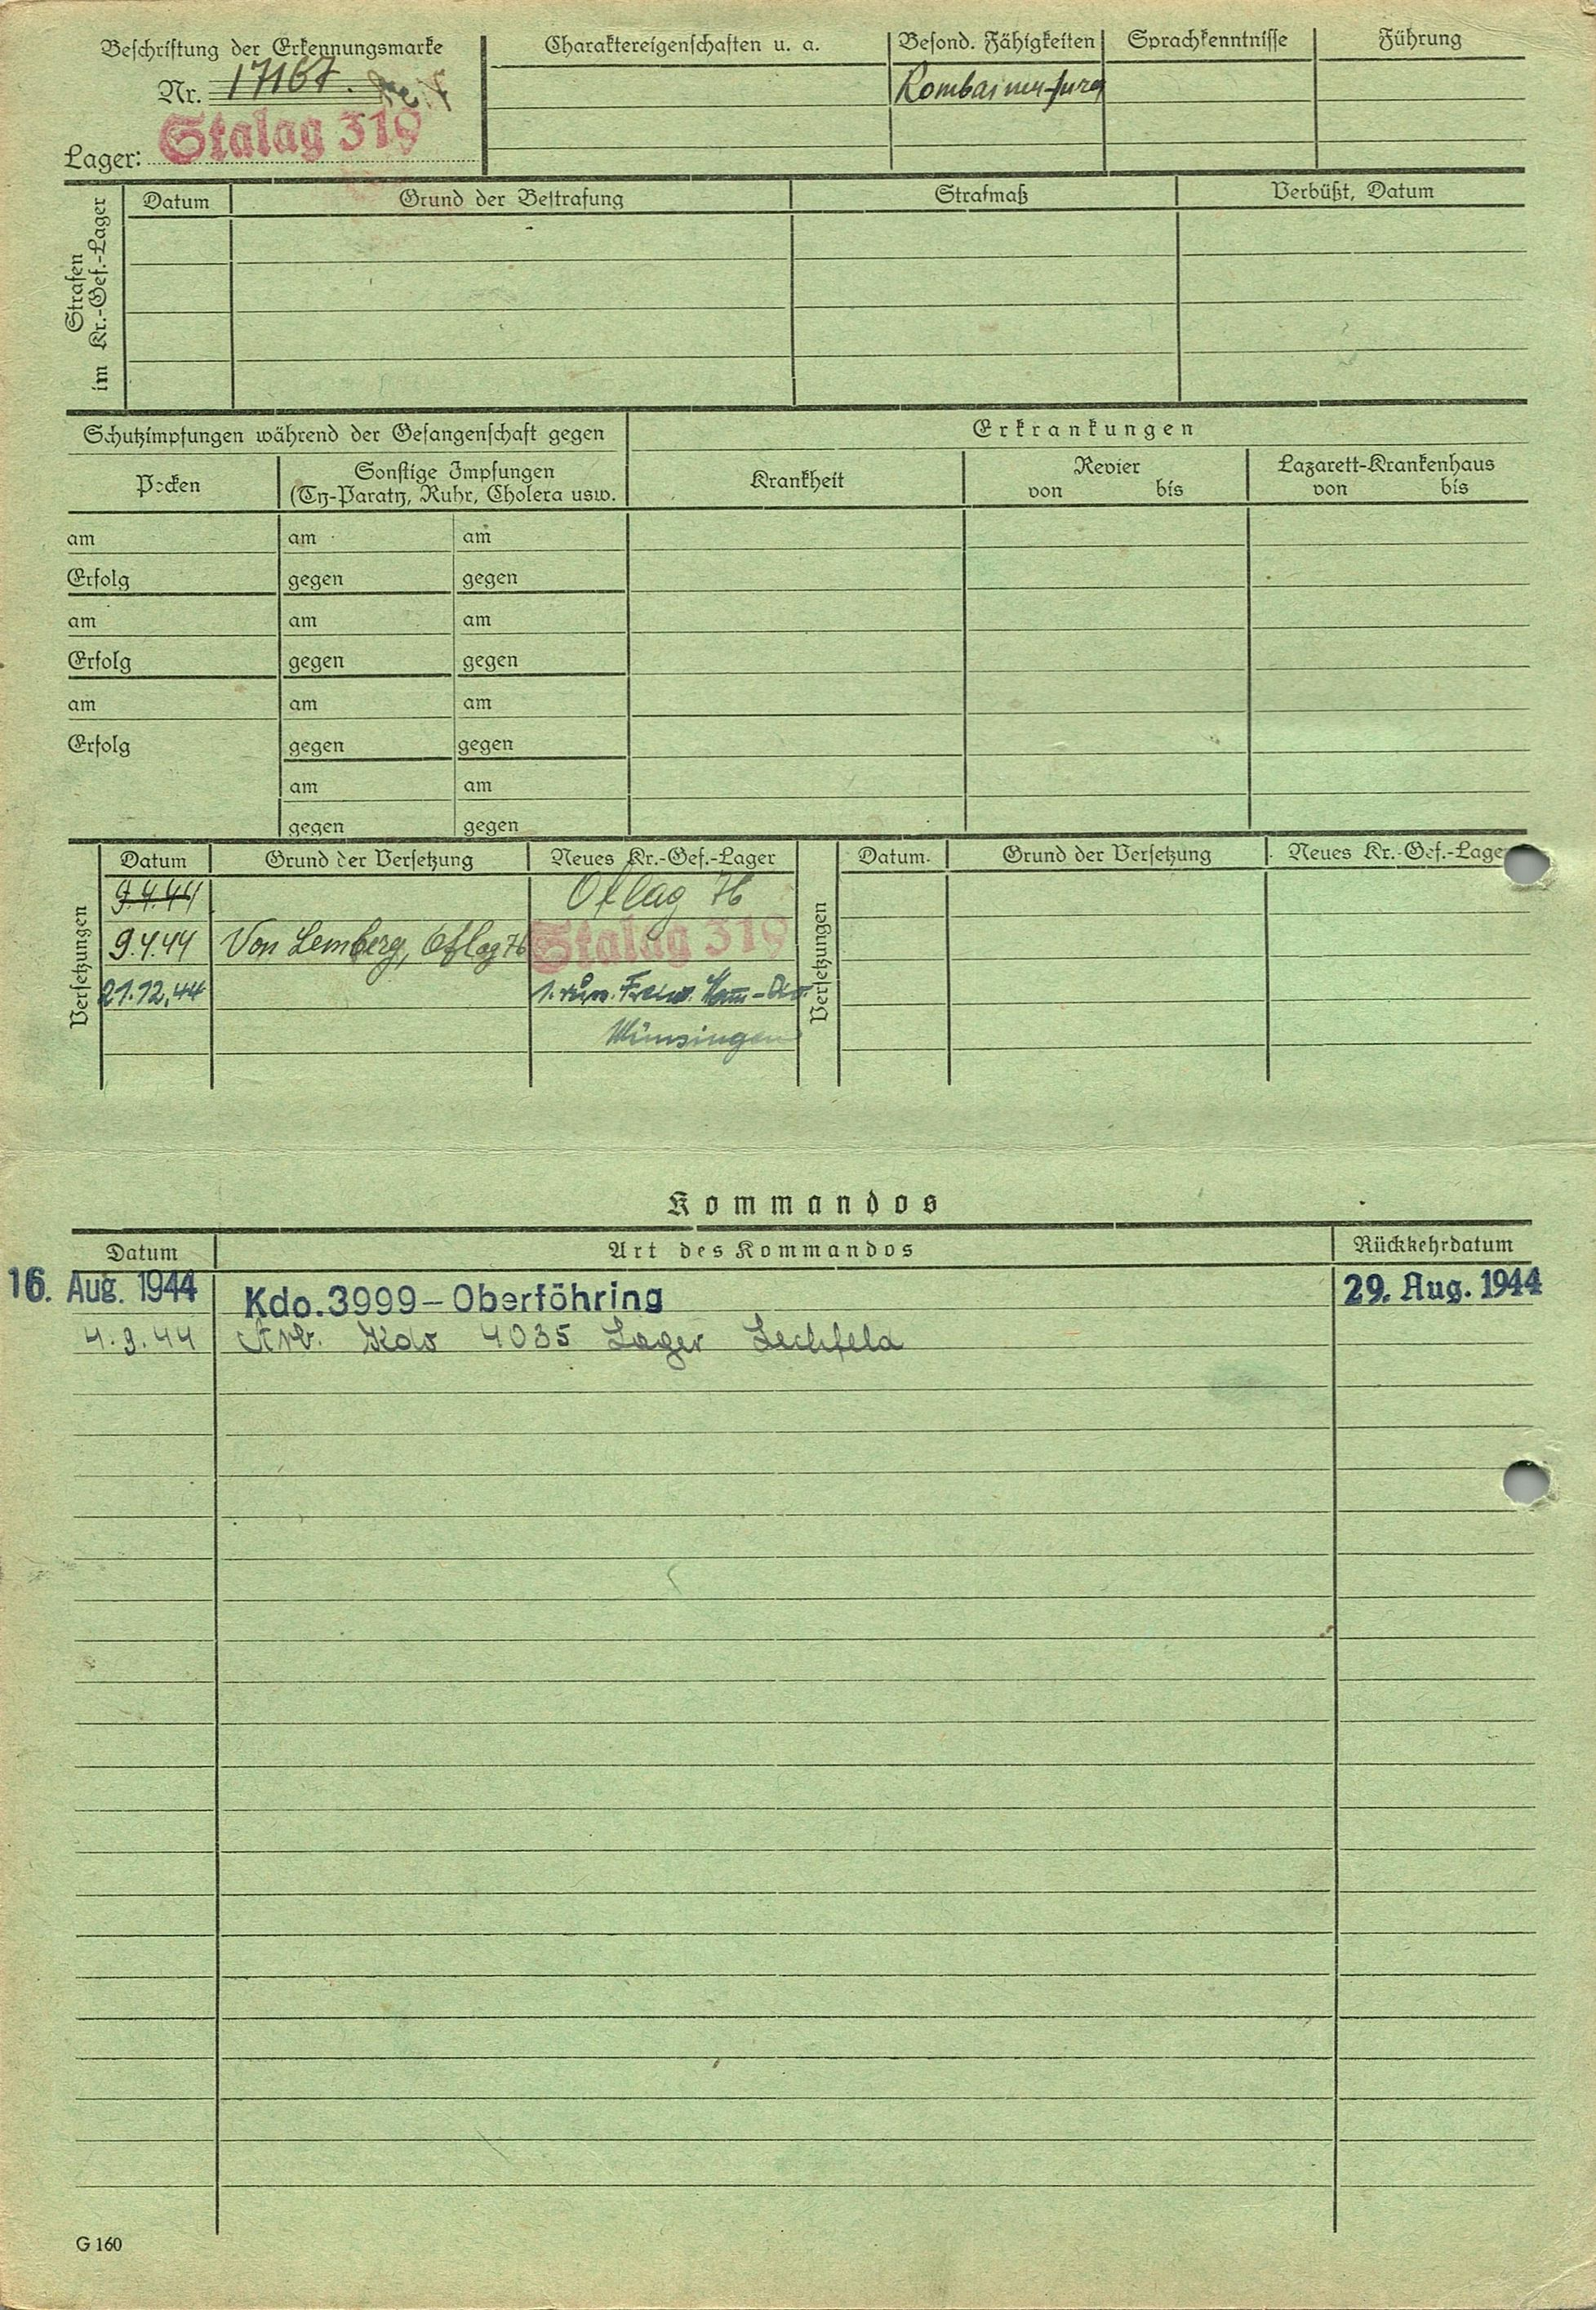 Beschriftung der Erkennungsmarke
Nr. 17167.
Lager: Stalag 319
Charaktereigenschaften u. a.
Besond. Fähigkeiten
Sprachkenntnisse
Führung
Strafen
im Kr.-Gef.-Lager
Datum
Grund der Bestrafung
Strafmaß
Verbüßt, Datum
Schutzimpfungen während der Gefangenschaft gegen
Erkrankungen
Pocken
Sonstige Impfungen
(Ty-Paraty, Ruhr, Cholera usw.
Krankheit
Revier
von bis
Lazarett-Krankenhaus
von bis
am am am
Erfolg gegen gegen
am am am
Erfolg gegen gegen
am am am
Erfolg gegen gegen
am am
gegen gegen
Versetzungen
Datum Grund der Versetzung Neues Kr.-Gef.-Lager
9.4.44 Oflag 76
9.4.44 Von Lemberg, Oflag 76 Stalag 319
21.12.44 1.
Münsingen
Versetzungen
Datum. Grund der Versetzung Neues Kr.-Gef.-Lage
Kommandos
Datum Art des Kommandos Rückkehrdatum
16. Aug. 1944 Kdo. 3999 – Oberföhring 29. Aug. 1944
4.9.44 Arb. Kdo 4035 Lager Lechfeld
G 160